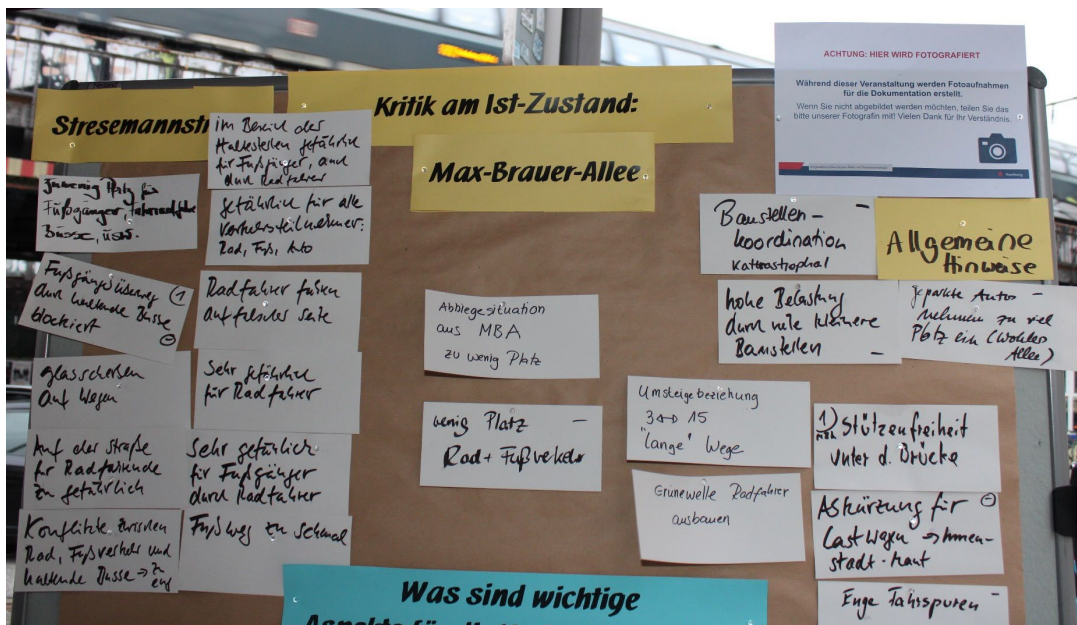 ACHTUNG: HIER WIRD FOTOGRAFIERT
Während dieser Veranstaltung werden Fotoaufnahmen
für die Dokumentation erstellt.
Wenn Sie nicht abgebildet werden möchten, teilen Sie das
bitte unserer Fotografin mit! Vielen Dank für Ihr Verständnis.
Hamburg
Kritik am Ist-Zustand:
Stresemannst
im Bereich der
Haltestellen gefährlich
für Fußgänger, auch
durch Radfahrer
Zuwenig Platz für
Fußgänger,
Busse, usw.
gefährlich für alle
Verkehrsteilnehmer:
Rad, Fuß, Auto
Fußgängerüberweg (1
durch haltende Busse
blockiert -
Radfahrer fahren
auf falscher Seite
Glasscherben
auf Wegen
Sehr gefährlich
für Radfahrer
Auf der Straße
für Radfahrende
zu gefährlich
Sehr gefährlich
für Fußgänger
durch Radfahrer
Konflikte zwischen
Rad, Fußverkehr und
haltende Busse → zu
eng
Fußweg zu schmal
Max-Brauer-Allee
Abbiegesituation
aus MBA
zu wenig Platz
wenig Platz -
Rad + Fußverkehr
Umsteigebeziehung
3 ↔ 15
"lange" Wege
Grünewelle Radfahrer
ausbauen
Baustellen - -
koordination
Katastrophal
hohe Belastung
durch viele kleinere
Baustellen -
Allgemeine
Hinweise
geparkte Autos -
nehmen zu viel
Platz ein (Wohlers
Allee)
1) Stützenfreiheit
unter d. Brücke
Abkürzung für -
Lastwagen → Innen-
stadt - Maut
Enge Fahrspuren -
Was sind wichtige